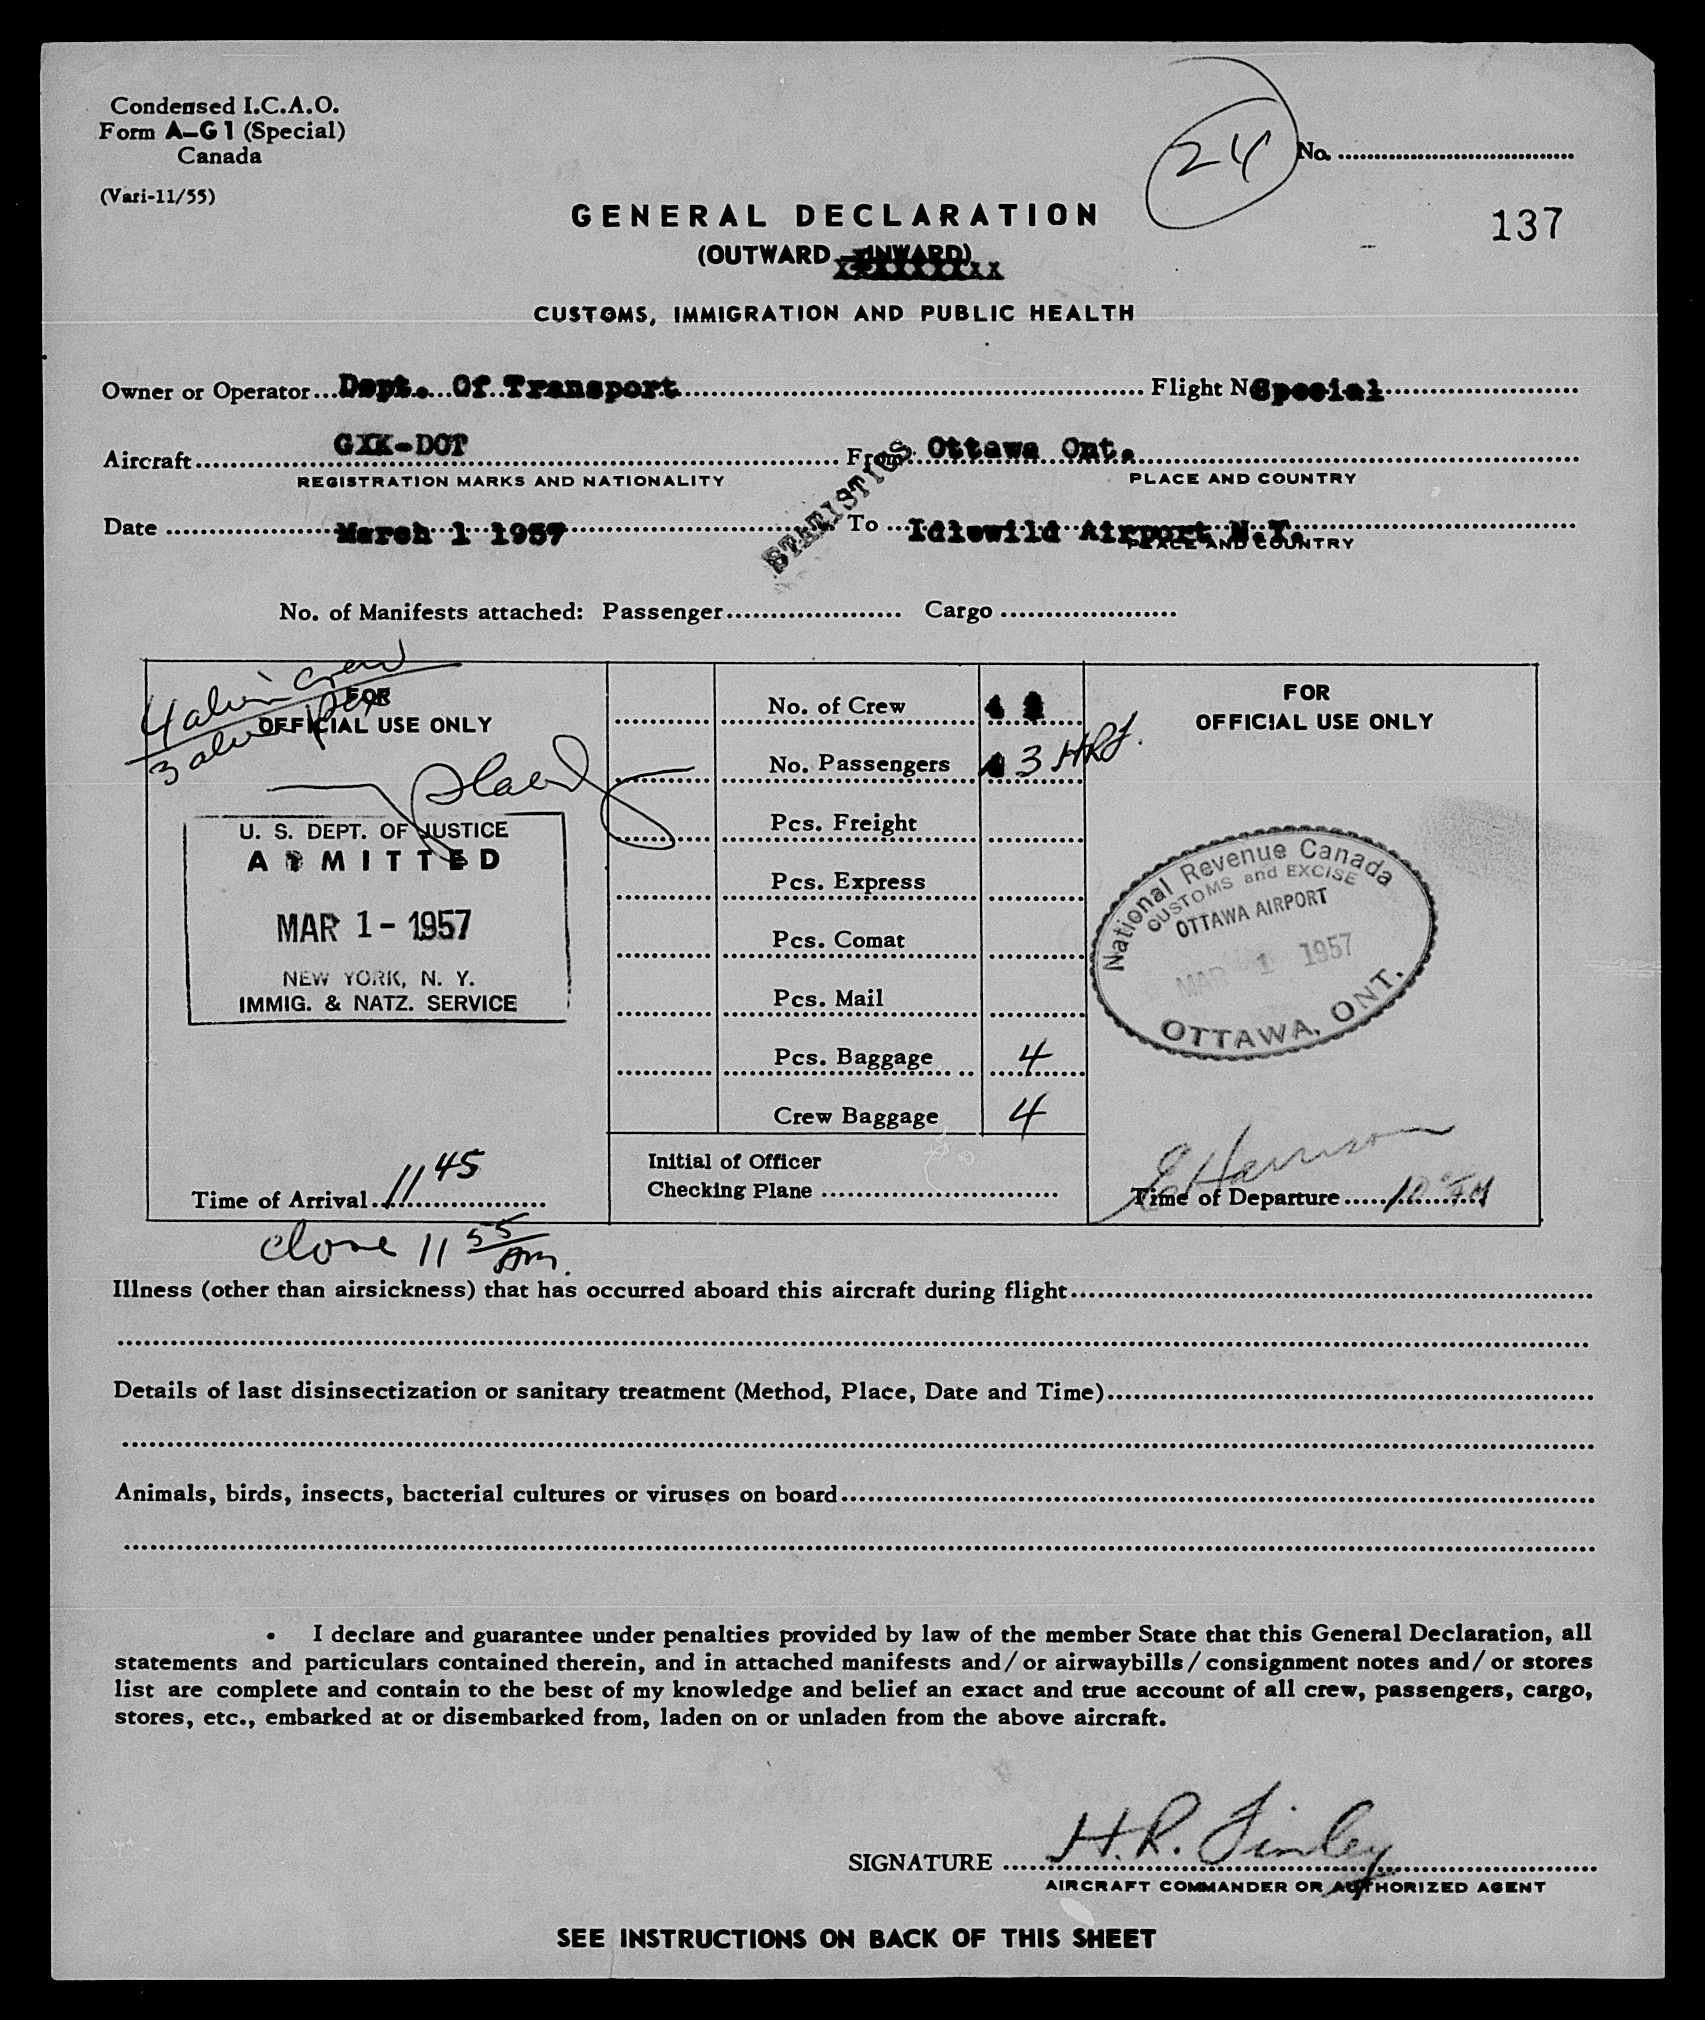 Condensed I.C.A.O.
Form A-G1 (Special)
Canada
(Vari-11/55)
24
No.
137
GENERAL DECLARATION
(OUTWARD - INWARD)
CUSTOMS, IMMIGRATION AND PUBLIC HEALTH
Owner or Operator Dept. Of Transport Flight No Special
Aircraft GXK-DOT From Ottawa Ont.
REGISTRATION MARKS AND NATIONALITY PLACE AND COUNTRY
STATISTICS
Date March 1 1957 To Idlewild Airport N.Y.
PLACE AND COUNTRY
No. of Manifests attached: Passenger Cargo
4 alien crew
3 alien pax
FOR
OFFICIAL USE ONLY
U. S. DEPT. OF JUSTICE
ADMITTED
MAR 1 - 1957
NEW YORK, N. Y.
IMMIG. & NATZ. SERVICE
Time of Arrival 11 45
close 11 55 Am.
No. of Crew 4
No. Passengers 3 HRF.
Pcs. Freight
Pcs. Express
Pcs. Comat
Pcs. Mail
Pcs. Baggage 4
Crew Baggage 4
Initial of Officer
Checking Plane
FOR
OFFICIAL USE ONLY
National Revenue Canada
CUSTOMS and EXCISE
OTTAWA AIRPORT
MAR 1 1957
OTTAWA, ONT.
E Harrison
Time of Departure 10 AM
Illness (other than airsickness) that has occurred aboard this aircraft during flight
Details of last disinsectization or sanitary treatment (Method, Place, Date and Time)
Animals, birds, insects, bacterial cultures or viruses on board
I declare and guarantee under penalties provided by law of the member State that this General Declaration, all
statements and particulars contained therein, and in attached manifests and/or airwaybills/consignment notes and/or stores
list are complete and contain to the best of my knowledge and belief an exact and true account of all crew, passengers, cargo,
stores, etc., embarked at or disembarked from, laden on or unladen from the above aircraft.
SIGNATURE H.R. Finley
AIRCRAFT COMMANDER OR AUTHORIZED AGENT
SEE INSTRUCTIONS ON BACK OF THIS SHEET